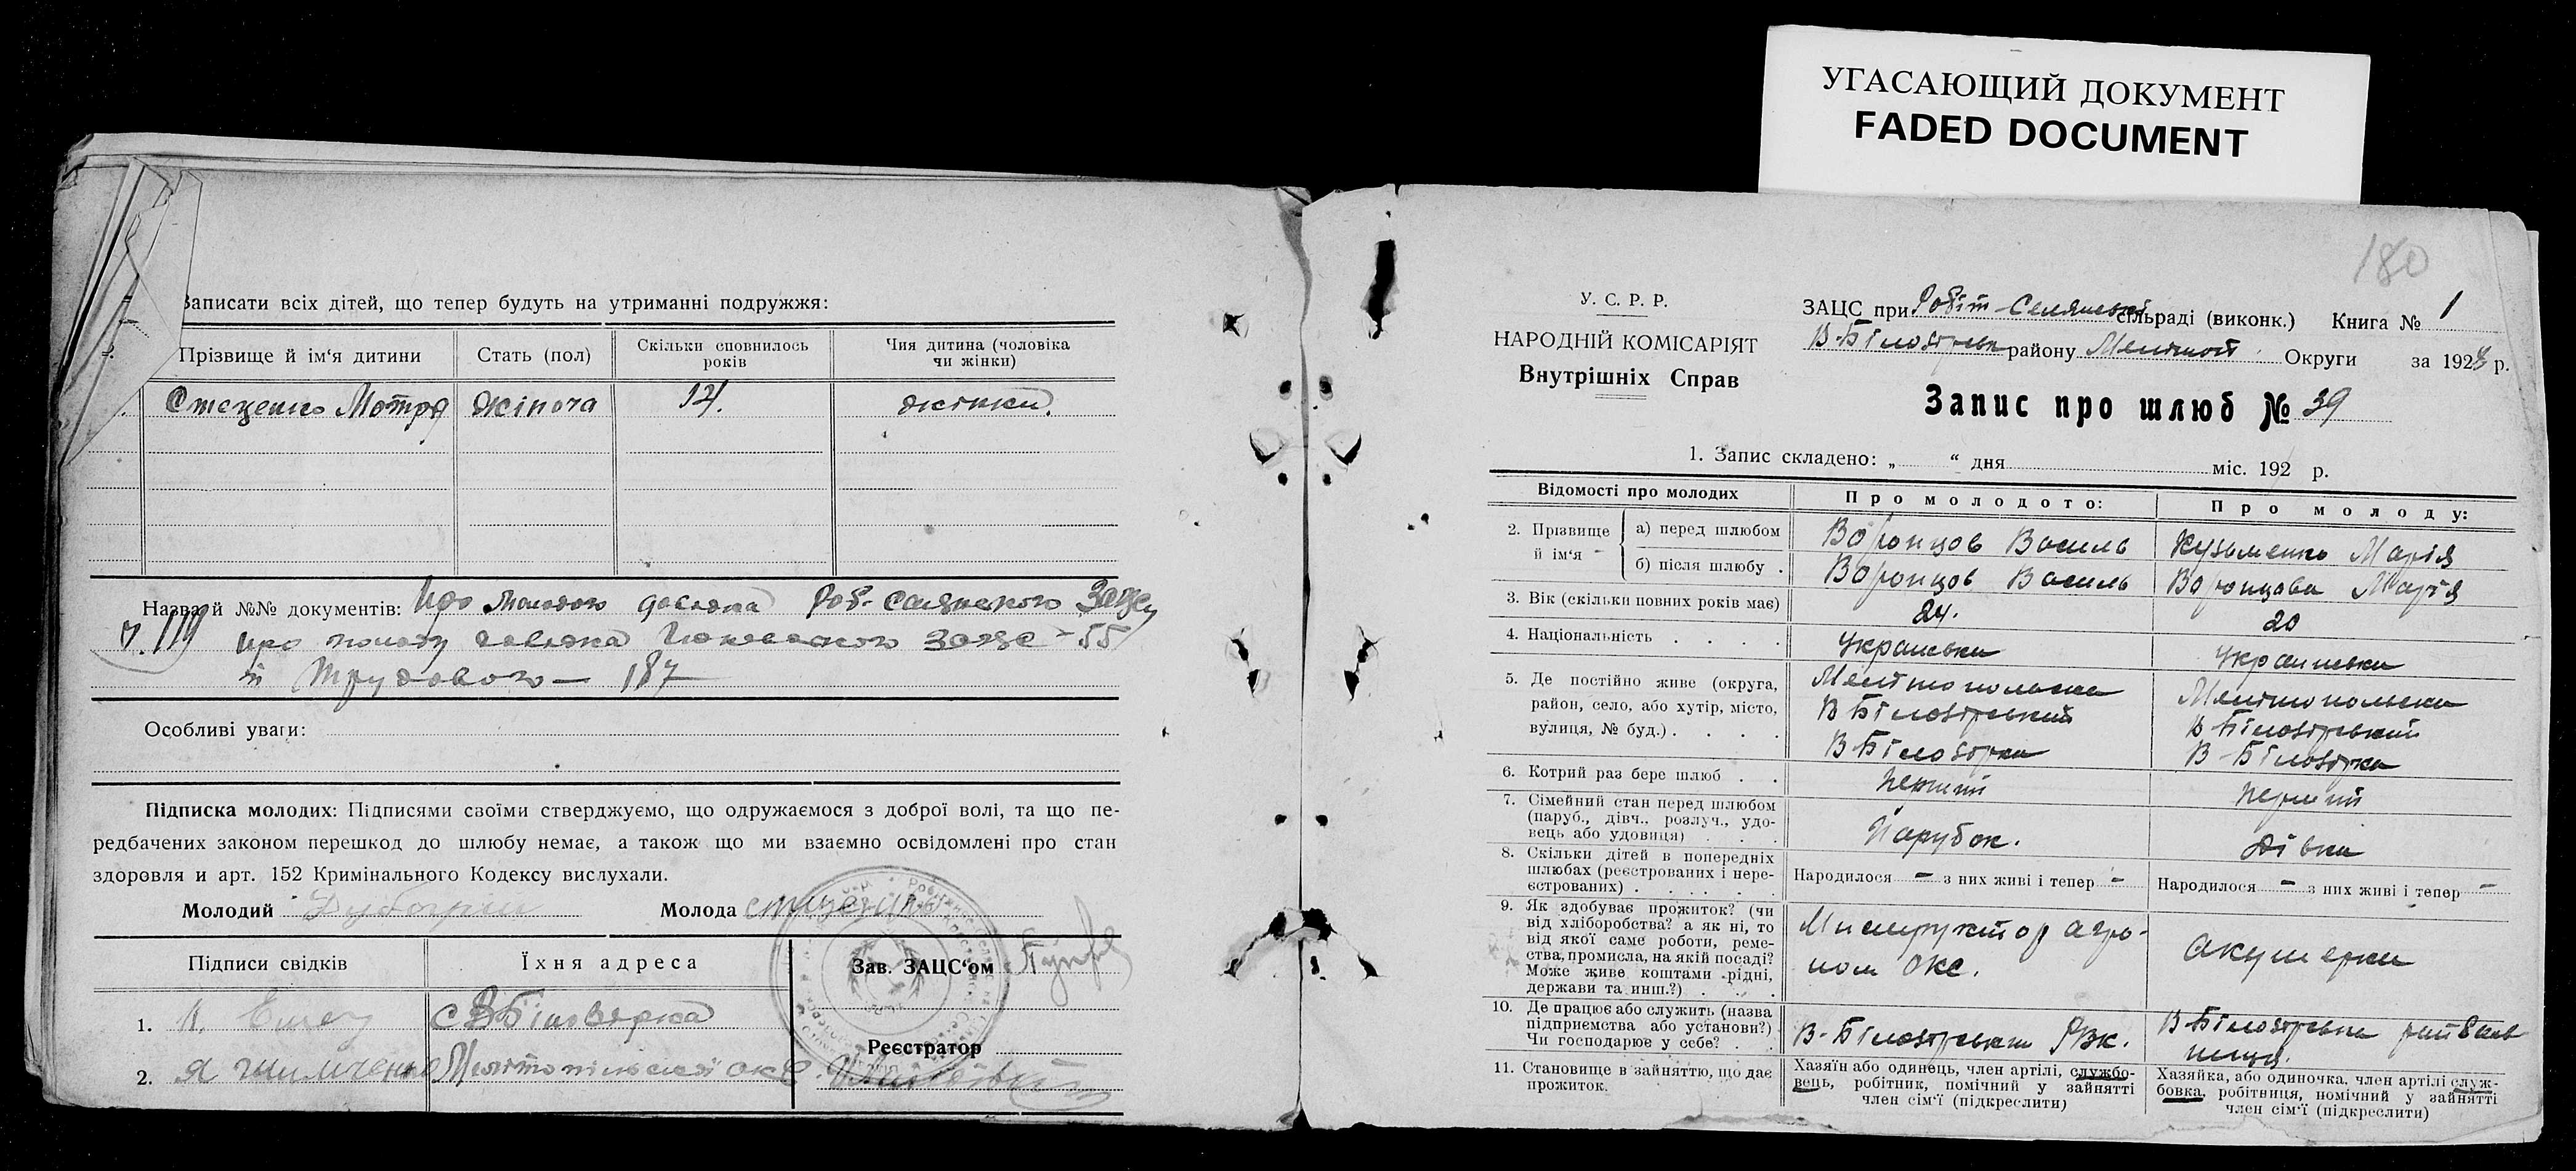 УГАСАЮЩИЙ ДОКУМЕНТ
FADED DOCUMENT
Записати всіх дітей, що тепер будуть на утриманні подружжя:
Прізвище й ім'я дитини
Стать (пол)
Скільки сповнилось
років
Чия дитина (чоловіка
чи жінки)
Стеценко Мотря
жіноча
12
жінки.
Назва й №№ документів: Про молодого довідка Роб-селянського Загсу
119 про молоду довідка загс - 55
й Трудового — 187
Особливі уваги:
Підписка молодих: Підписями своїми стверджуємо, що одружаємося з доброї волі, та що пе-
редбачених законом перешкод до шлюбу немає, а також що ми взаємно освідомлені про стан
здоровля и арт. 152 Кримінального Кодексу вислухали.
Молодий
Молода
Підписи свідків
Їхня адреса
Зав. ЗАЦС'ом
1.
с В Білозерка
Реєстратор
2.
180
У. С. Р. Р.
НАРОДНІЙ КОМІСАРІЯТ
Внутрішніх Справ
ЗАЦС при Робіт-Селянській сільраді (виконк.) Книга № 1
В-Білозірськ району Меліт Округи за 1928 р.
Запис про шлюб № 39
1. Запис складено: „ “ дня міс. 192 р.
Відомості про молодих
Про молодото:
Про молоду:
2. Прізвище
й ім'я
а) перед шлюбом
Воронцов Василь
Кузьменко Марія
б) після шлюбу
Воронцов Василь
Воронцова Марія
3. Вік (скільки повних років має)
24.
20
4. Національність
Українськи
Українськи
5. Де постійно живе (округа,
район, село, або хутір, місто,
вулиця, № буд.)
Мелітопольска
В Білозірський
В-Білозірка
Мелітопольска
В-Білозірський
В-Білозірка
6. Котрий раз бере шлюб
перший
перший
7. Сімейний стан перед шлюбом
(паруб., дівч., розлуч., удо-
вець або удовиця)
Парубок.
Дівка
8. Скільки дітей в попередніх
шлюбах (реєстрованих і нере-
єстрованих)
Народилося – з них живі і тепер –
Народилося – з них живі і тепер –
9. Як здобуває прожиток? (чи
від хліборобства? а як ні, то
від якої саме роботи, реме-
ства, промисла, на якій посаді?
Може живе коштами рідні,
держави та инш.?)
Инструктор агро-
ном окс.
акушерки
10. Де працює або служить (назва
підприємства або установи?)
Чи господарює у себе?
В-Білозірським РВК.
В-Білозірська
11. Становище в зайняттю, що дає
прожиток.
Хазяїн або одинець, член артілі, службо-
вець, робітник, помічний у зайнятті
член сім'ї (підкреслити)
Хазяйка, або одиночка, член артілі служ-
бовка, робітниця, помічний у зайнятті
член сім'ї (підкреслити)